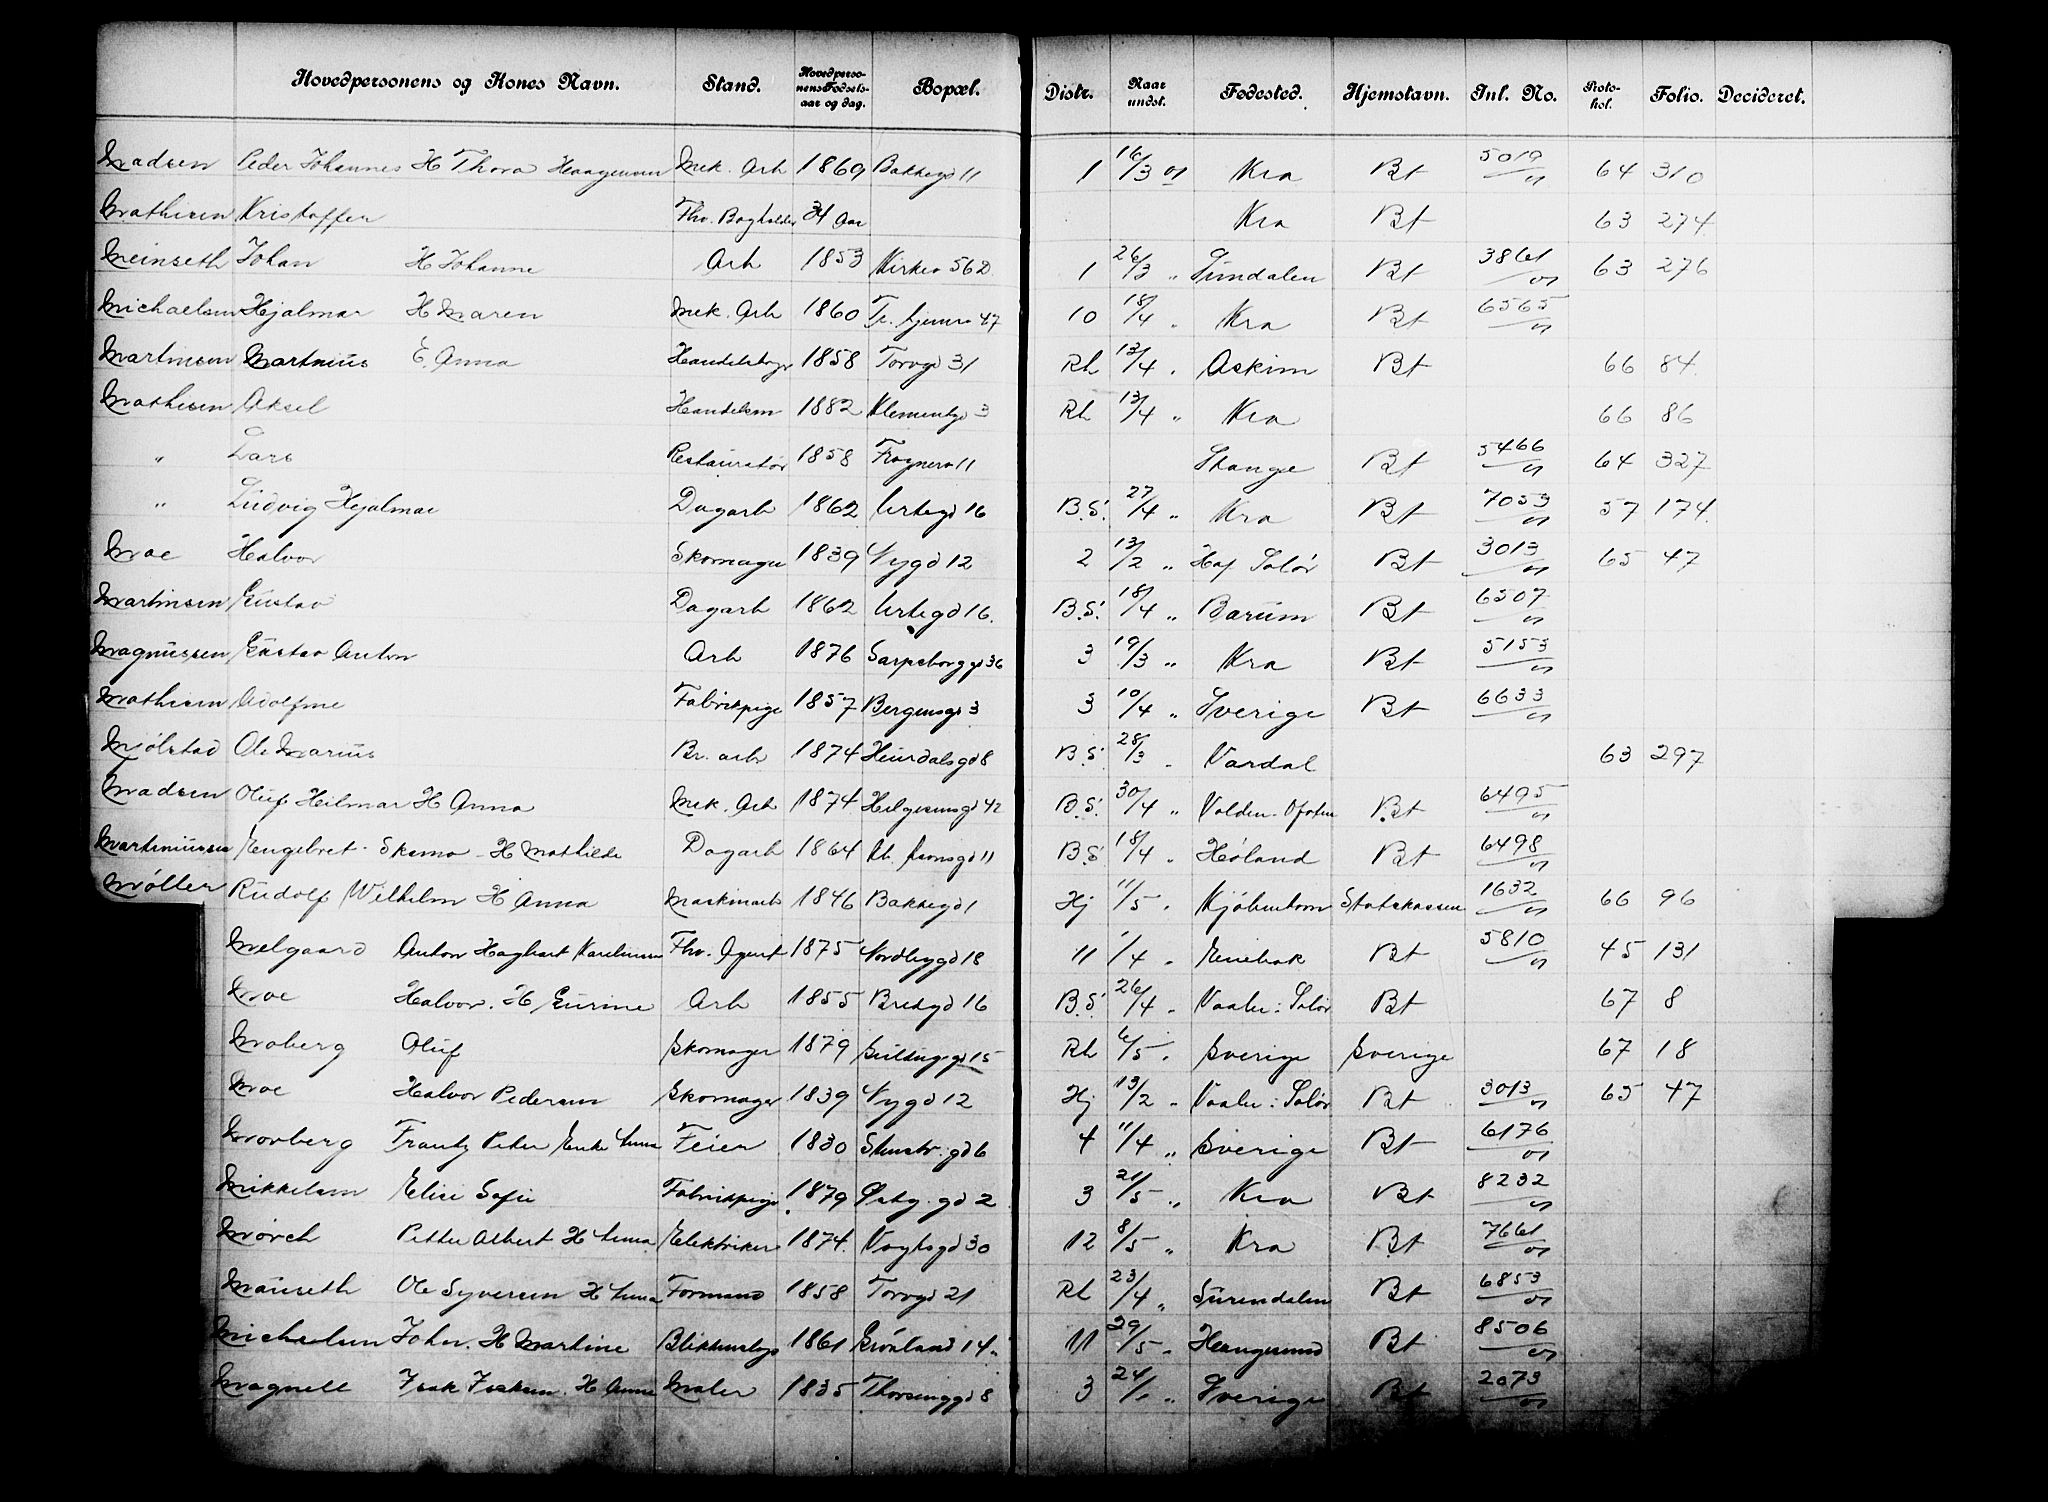 Hovedpersonens og Kones Navn. Stand. Hovedpersonens Fødselsaar og dag. Bopæl. Distr. Naar undst. Fødested. Hjemstavn. Inl. No. Protokol. Folio. Decideret.
Madsen Peder Johannes H Thora Haagensen Mek. Arb 1869 Bakkegd 11 1 16/3 01 Kra Bt 5019/01 64 310
Mathisen Kristoffer Fhv. Bogholder 34 Aar Kra Bt 63 274
Meinseth Johan H Johanne Arb 1853 Kirkev 56 D. 1 26/3 " Sundalen Bt 3861/01 63 276
Michaelsen Hjalmar H Maren Mek. Arb 1860 47 10 18/4 " Kra Bt 6565/01
Martinsen Martinius E. Anna 1858 Torvgd 31 Rh 13/4 " Askim Bt 66 84.
Mathisen Aksel Handelsm 1882 Klemetsgd 3 Rh 13/4 " Kra 66 86
" Lars Restauratør 1858 Frognerv 11 Stange Bt 5466/01 64 327
" Ludvig Hjalmar Dagarb 1862 Urtegd 16 B.S. 27/4 " Kra Bt 7053/01 57 174.
Moe Halvor Skomager 1839 Nygd 12 2 13/2 " Hof Solør Bt 3013/01 65 47
Martinsen Gustav Dagarb 1862 Urtegd 16. B.S. 18/4 " Barum Bt 6507/01
Magnussen Gustav Anton Arb 1876 Sarpsborggd 36 3 19/3 " Kra Bt 5153/01
Mathisen Adolfine Fabrikpige 1857 Bergensgd 3 3 10/4 " Sverige Bt 6633/01
Mjølstad Ole Marius Br. arb 1874 Heurdalsgd 8 B.S. 28/3 " Vardal 63 297
Madsen Oluf Hilmar H Anna Mek. Arb 1874 Helgesensgd 42 B.S. 30/4 " Volden. Ofoten Bt 6495/01
Martiniussen Engebret Skamo H Mathilde Dagarb 1864 11 B.S. 18/4 " Høland Bt 6498/01
Møller Rudolf Wilhelm H Anna Maskinarb 1846 Bakkegd 1 Hj 11/5 " Kjøbenhavn Statskassen 1632/01 66 96
Melgaard Anton Hagbart Kareliussen Fhv. Agent 1875 Nordbygd 18 11 1/4 " Enebak Bt 5810/01 45 131
Moe Halvor. H Gurine Arb 1855 Bredgd 16 B.S. 26/4 " Vaaler: Solør Bt 67 8
Moberg Oluf Skomager 1879 15 Rh 6/5 " Sverige Sverige 67 18
Moe Halvor Pedersen Skomager 1839 Nygd 12 Hj 13/2 " Vaaler: Solør Bt 3013/01 65 47
Movberg Frantz Peter Enke Anna Feier 1830 Stenstr. gd 6 4 11/4 " Sverige Bt 6176/01
Mikkelsen Elise Sofie Fabrikpige 1879 Østby. gd 2 3 21/5 " Kra Bt 8232/01
Mørch Petter Albert H Anna Elektriker 1874. Vogtsgd 30 12 8/5 " Kra Bt 7661/01
Mauseth Ole Syversen H Anna Formand 1858 Torvgd 21 Rh 23/4 " Surendalen Bt 6853/01
Michaelsen John. H Martine Blikkenslag 1861 Grønland 14. 11 29/5 " Haugesund Bt 8506/01
Magnell Isak Isaksen. H Anna Maler 1835 Thorsenggd 8 3 24/1 " Sverige Bt 2073/01